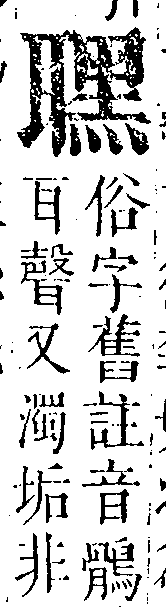 俗字舊註音鶻
耳聲又濁垢非